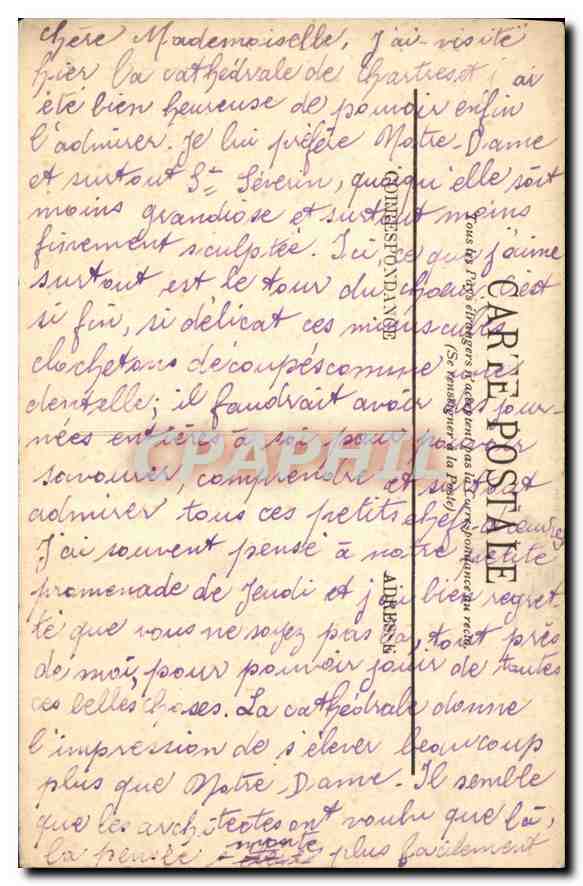 Chère Mademoiselle, J'ai visité
hier la cathédrale de Chartres et j'ai
été bien heureuse de pouvoir enfin
l'admirer. Je lui préfère Notre-Dame
et surtout St Séverin, quoiqu'elle soit
moins grandiose et surtout moins
finement sculptée. Ici, ce que j'aime
surtout est le tour du choeur, c'est
si fin, si délicat ces minuscules
clochetons découpés comme une
dentelle; il faudrait avoir des jour-
nées entières à soi pour pouvoir
savourer, comprendre et surtout
admirer tous ces petits chefs-d'oeuvres
J'ai souvent pensé à notre petite
promenade de Jeudi et j'ai bien regret-
té que vous ne soyez pas là, tout près
de moi, pour pouvoir jouir de toutes
ces belles choses. La cathédrale donne
l'impression de s'élever beaucoup
plus que Notre-Dame. Il semble
que les architectes ont voulu que là,
la pensée monte plus facilement
CARTE POSTALE
Tous les Pays étrangers n'acceptent pas la Correspondance au recto
(Se renseigner à la Poste)
CORRESPONDANCE
ADRESSE
CPAPHIL